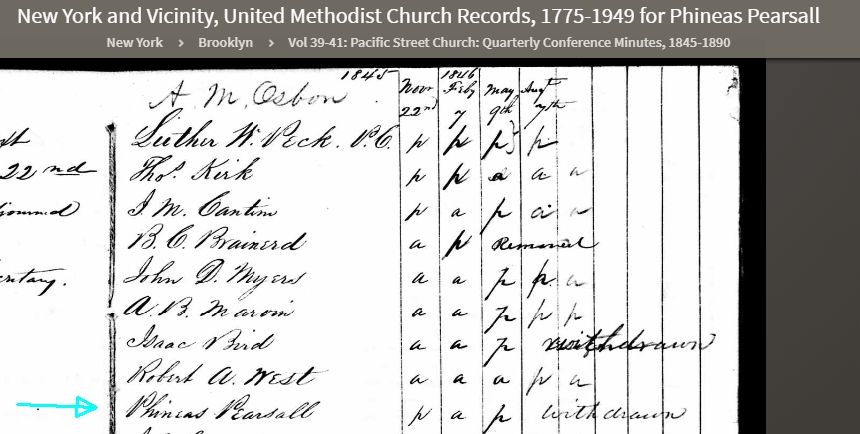 New York and Vicinity, United Methodist Church Records, 1775-1949 for Phineas Pearsall
New York > Brooklyn > Vol 39-41: Pacific Street Church: Quarterly Conference Minutes, 1845-1890
1845 1846
A. M. Osbon Novr Feby May Augt
22nd 7 9th 7th
Luther W. Peck. P.C. p p p} p
22nd Thos. Kirk p p a a a
J. M. Cantin p a p a a
B. C. Brainerd a p Removed
John D. Myers a a p p a
A. B. Marvin a a p p p
Isaac Bird a a p withdrawn
Robert A. West a a a p a
Phineas Pearsall p a p withdrawn